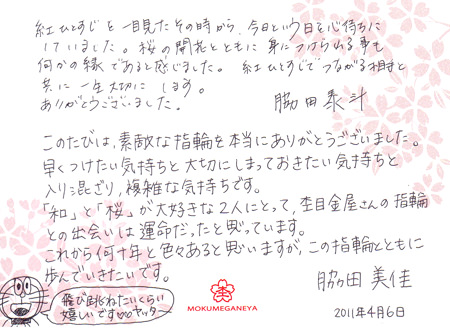 紅ひとすじを一目見たその時から、今日という日を心待ちに
していました。桜の開花とともに身につけられる事も
何かの縁であると感じました。紅ひとすじでつながる相手と
共に一生大切にします。
ありがとうございました。
脇田泰斗
このたびは、素敵な指輪を本当にありがとうございました。
早くつけたい気持ちと大切にしまっておきたい気持ちと
入り混ざり、複雑な気持ちです。
「和」と「桜」が大好きな2人にとって、杢目金屋さんの指輪
との出会いは運命だったと思っています。
これから何十年と色々あると思いますが、この指輪とともに
歩んでいきたいです。
脇田美佳
飛び跳ねたいくらい
嬉しいです♡♡ヤッター
MOKUMEGANEYA
2011年4月6日